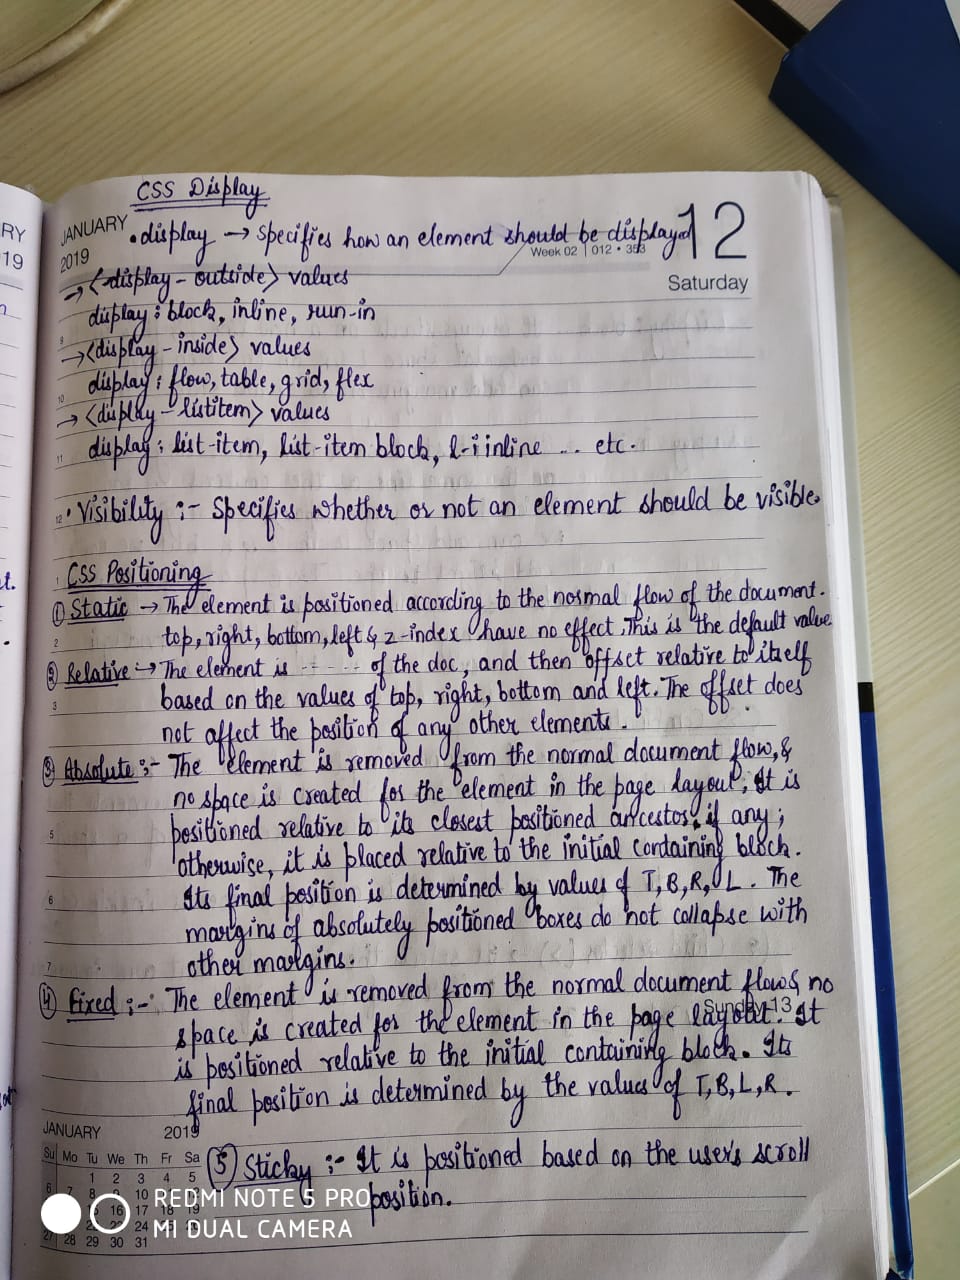 CSS Display
JANUARY
2019
12
• display → specifies how an element should be displayed
Week 02 | 012 • 353
Saturday
→ <display - outside> values
display : block, inline, run-in
→ <display - inside> values
display : flow, table, grid, flex
→ <display - listitem> values
display : list-item, list-item block, l-i inline ... etc.
• Visibility :- Specifies whether or not an element should be visible.
CSS Positioning
① Static → The element is positioned according to the normal flow of the document.
top, right, bottom, left & z-index have no effect. This is the default value
② Relative → The element is ------ of the doc, and then offset relative to itself
based on the values of top, right, bottom and left. The offset does
not affect the position of any other elements.
③ Absolute :- The element is removed from the normal document flow, &
no space is created for the element in the page layout; It is
positioned relative to its closest positioned ancestor, if any;
otherwise, it is placed relative to the initial containing block.
Its final position is determined by values of T, B, R, L. The
margins of absolutely positioned boxes do not collapse with
other margins.
④ Fixed :- The element is removed from the normal document flow & no
Sunday 13
space is created for the element in the page layout. It
is positioned relative to the initial containing block. Its
final position is determined by the values of T, B, L, R.
⑤ Sticky :- It is positioned based on the user's scroll
position.
JANUARY 2019
Su Mo Tu We Th Fr Sa
1 2 3 4 5
6 7 8 10
16 17 18 19
24
27 28 29 30 31
REDMI NOTE 5 PRO
MI DUAL CAMERA
RY
19